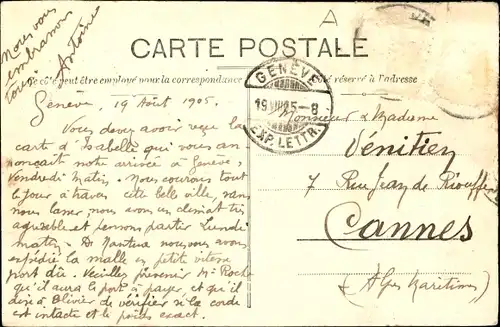 Nous vous
embrassons
tous.
Antoine
A
CARTE POSTALE
Ce côté peut être employé pour la correspondance
Côté réservé à l'adresse
GENÈVE
19 VIII 05-8
EXP. LETTR.
Genève, 19 Août 1905.
Vous devez avoir reçu la
carte d'Isabelle qui vous an
nonçait notre arrivée à Genève,
Vendredi Matin. Nous courons tout
le jour à travers cette belle ville, sans
nous lasser, nous avons un climat très
agréable et pensons partir Lundi
matin. De Nantua nous vous avons
expédié la malle en petite vitesse
port dû. Veuillez prévenir Mr Roche
qu'il aura le port à payer, et qu'il
dise à Olivier de vérifier si la corde
est intacte et le poids exact.
Monsieur & Madame
Vénitien
7 Rue Jean de Riouffe
Cannes
(Alpes Maritimes)